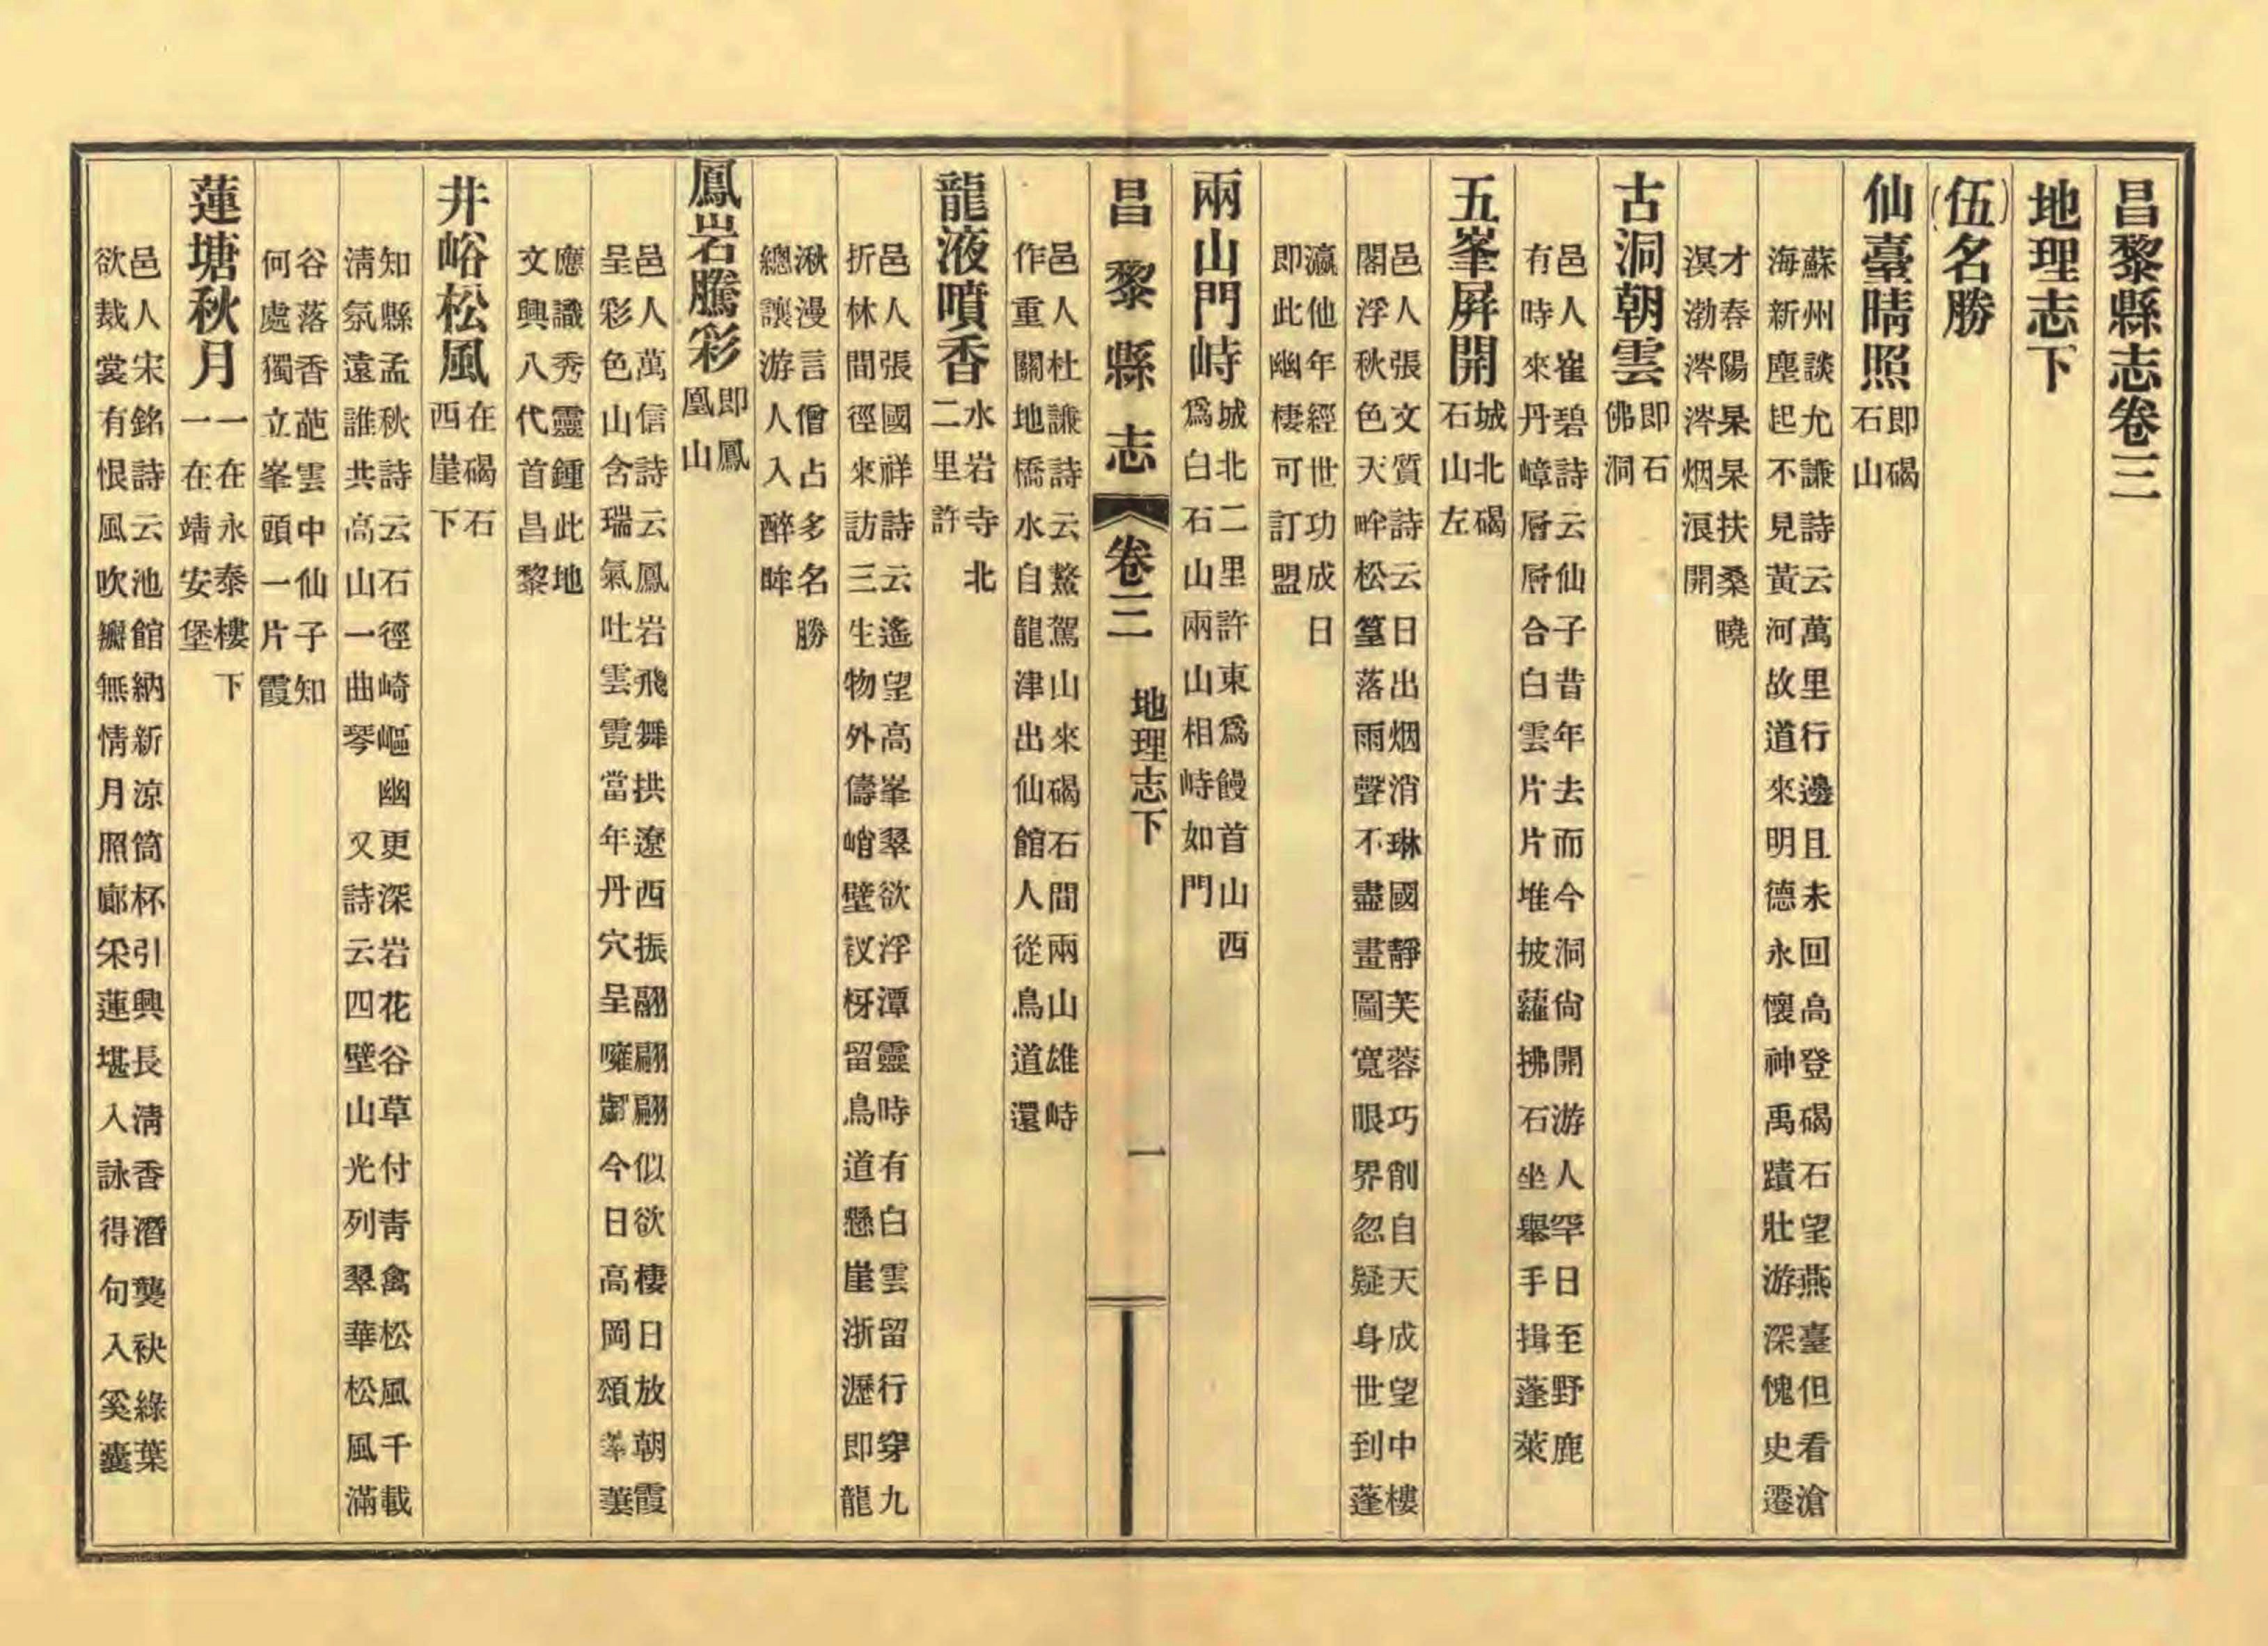 昌黎縣志卷三
地理志下
(伍)名勝
仙臺晴照
即碣
石山
蘇州談允謙詩云萬里行邊且未回高登碣石望燕臺但看滄
海新塵起不見黃河故道來明德永懷神禹蹟壯游深愧史遷
才春陽杲杲扶桑曉
溟渤涔涔烟浪開
古洞朝雲
即石
佛洞
邑人崔碧詩云仙子昔年去而今洞尙開游人罕日至野鹿
有時來丹嶂層層合白雲片片堆披蘿拂石坐舉手揖蓬萊
五峯屛開
城北碣
石山左
邑人張文質詩云日出烟消琳國靜芙蓉巧削自天成望中樓
閣浮秋色天畔松篁落雨聲不盡畫圖寬眼界忽疑身世到蓬
瀛他年經世功成日
即此幽棲可訂盟
兩山門峙
城北二里許東爲饅首山西
爲白石山兩山相峙如門
昌黎縣志
卷三
地理志下
一
邑人杜謙詩云鰲駕山來碣石間兩山雄峙
作重關地橋水自龍津出仙館人從鳥道還
龍液噴香
水岩寺北
二里許
邑人張國祥詩云遙望高峯翠欲浮潭靈時有白雲留行穿九
折林間徑來訪三生物外儔峭壁杈枒留鳥道懸崖浙瀝即龍
湫漫言僧占多名勝
總讓游人入醉眸
鳳岩騰彩
即鳳
凰山
邑人萬信詩云鳳岩飛舞拱遼西振翮翩翩似欲棲日放朝霞
呈彩色山含瑞氣吐雲霓當年丹穴呈噰今日高岡頌菶萋
應識秀靈鍾此地
文興八代首昌黎
井峪松風
在碣石
西崖下
知縣孟秋詩云石徑崎嶇幽更深岩花谷草付青禽松風千載
淸氛遠誰共高山一曲琴又詩云四壁山光列翠華松風滿
谷落香葩雲中仙子知
何處獨立峯頭一片霞
蓮塘秋月
一在永泰樓下
一在靖安堡
邑人宋銘詩云池館納新涼筒杯引興長淸香潛襲袂綠葉
欲裁裳有恨風吹瓣無情月照廊采蓮堪入詠得句入奚囊